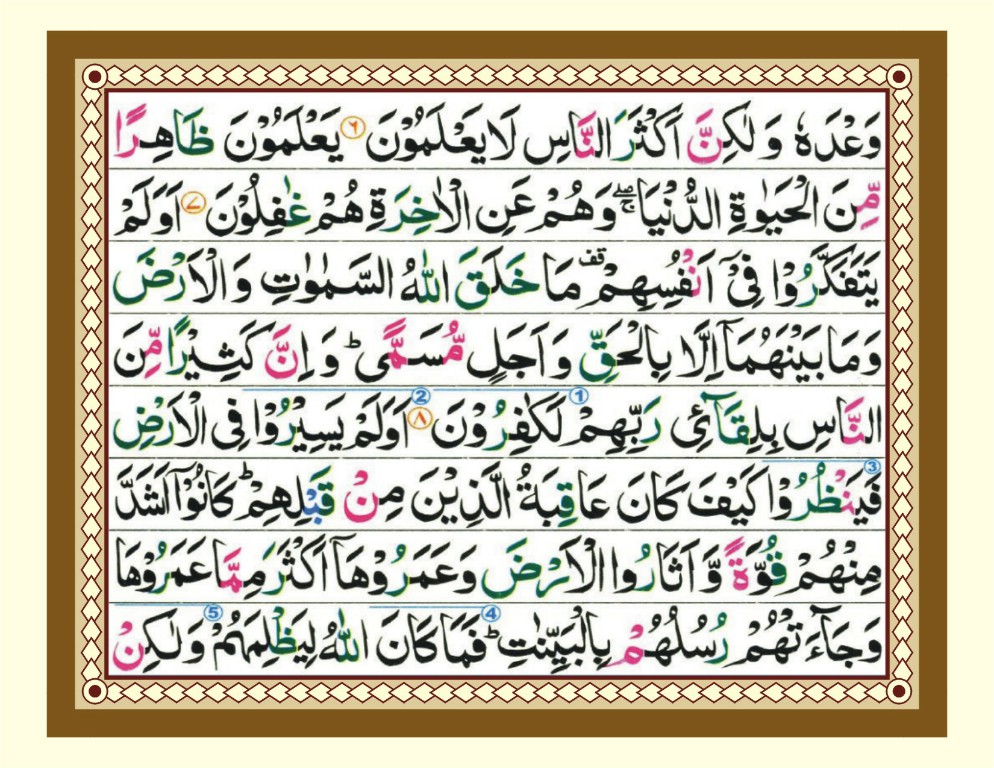 وَعْدَهٗ وَ لٰكِنَّ اَكْثَرَ النَّاسِ لَا يَعْلَمُوْنَ ۶ يَعْلَمُوْنَ ظَاهِرًا
مِّنَ الْحَيٰوةِ الدُّنْيَا ۖۚ وَهُمْ عَنِ الْاٰخِرَةِ هُمْ غٰفِلُوْنَ ۷ اَوَلَمْ
يَتَفَكَّرُوْا فِيْٓ اَنْفُسِهِمْ قف مَا خَلَقَ اللّٰهُ السَّمٰوٰتِ وَ الْاَرْضَ
وَمَا بَيْنَهُمَآ اِلَّا بِالْحَقِّ وَ اَجَلٍ مُّسَمًّى ؕ وَ اِنَّ كَثِيْرًا مِّنَ
النَّاسِ بِلِقَآئِ رَبِّهِمْ لَكٰفِرُوْنَ ۸ اَوَلَمْ يَسِيْرُوْا فِي الْاَرْضِ
فَيَنْظُرُوْا كَيْفَ كَانَ عَاقِبَةُ الَّذِيْنَ مِنْ قَبْلِهِمْ ؕ كَانُوْٓا اَشَدَّ
مِنْهُمْ قُوَّةً وَّ اَثَارُوا الْاَرْضَ وَعَمَرُوْهَآ اَكْثَرَ مِمَّا عَمَرُوْهَا
وَجَآءَتْهُمْ رُسُلُهُمْ بِالْبَيِّنٰتِ ؕ فَمَا كَانَ اللّٰهُ لِيَظْلِمَهُمْ وَلٰكِنْ